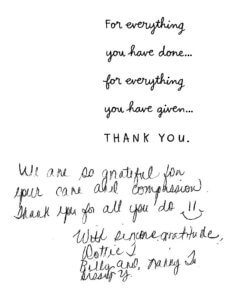 For everything
you have done...
for everything
you have given...
THANK YOU.
We are so grateful for
your care and compassion.
Thank you for all you do!!
With sincere gratitude,
Dottie T
Billy and Nanny T